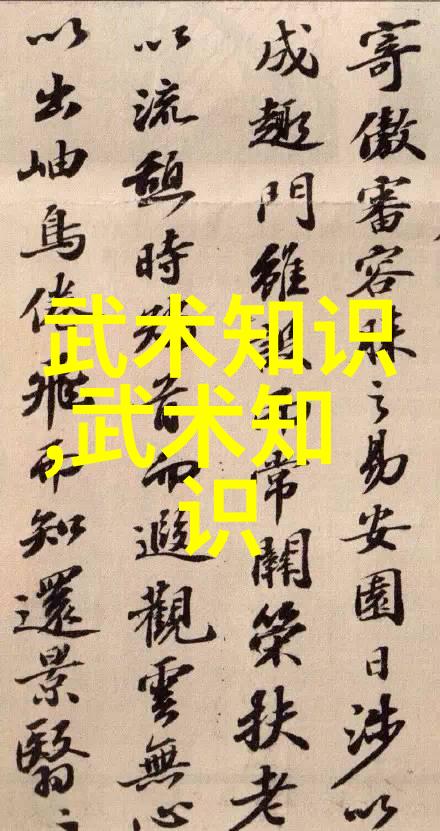 寄傲審容膝之易安園日涉以
成趣門雖設而常關策扶老
以流憩時矯首而遐觀雲無心
以出岫鳥倦飛而知還景翳
武术知识
,武术知
识